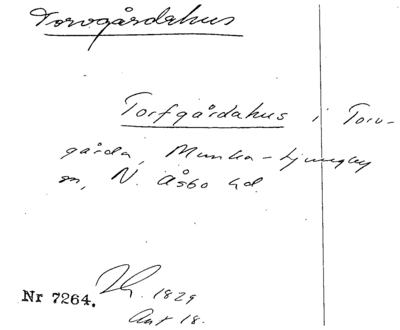 Torvgårdahus
Torfgårdahus i Torv-
gårda, Munka-Ljungby
sn, N. Åsbo hd.
Nr 7264. 1829
Ant 18.